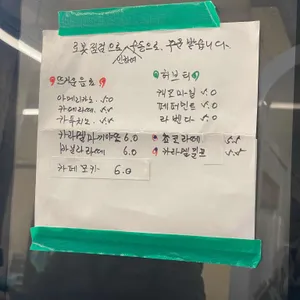 로봇 점검으로 수동으로 주문 받습니다.
뜨거운음료
아메리카노 5.0
카페라떼 5.5
카푸치노 5.5
카라멜마끼아또 6.0
바닐라라떼 6.0
카페모카 6.0
허브티
캐모마일 5.0
페퍼민트 5.0
라벤다 5.0
초코라떼 5.5
카라멜밀크 5.5